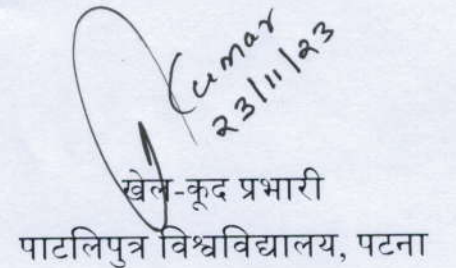 Kumar
23/11/23
खेल-कूद प्रभारी
पाटलिपुत्र विश्वविद्यालय, पटना